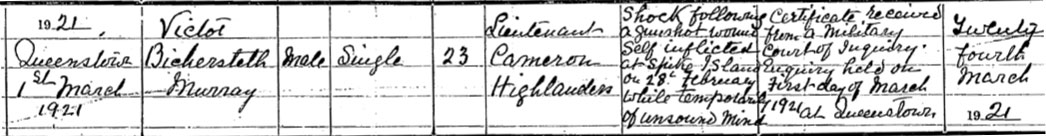 1921.
Queenstown
1st March
1921
Victor
Bickersteth
Murray
Male
Single
23
Lieutenant
Cameron
Highlanders
Shock following
a gunshot wound
Self inflicted
at Spike Island
on 28th February
while temporarily
of unsound mind
Certificate received
from a Military
Court of Inquiry.
Enquiry held on
First day of March
1921 at Queenstown
Twenty
fourth
March
1921